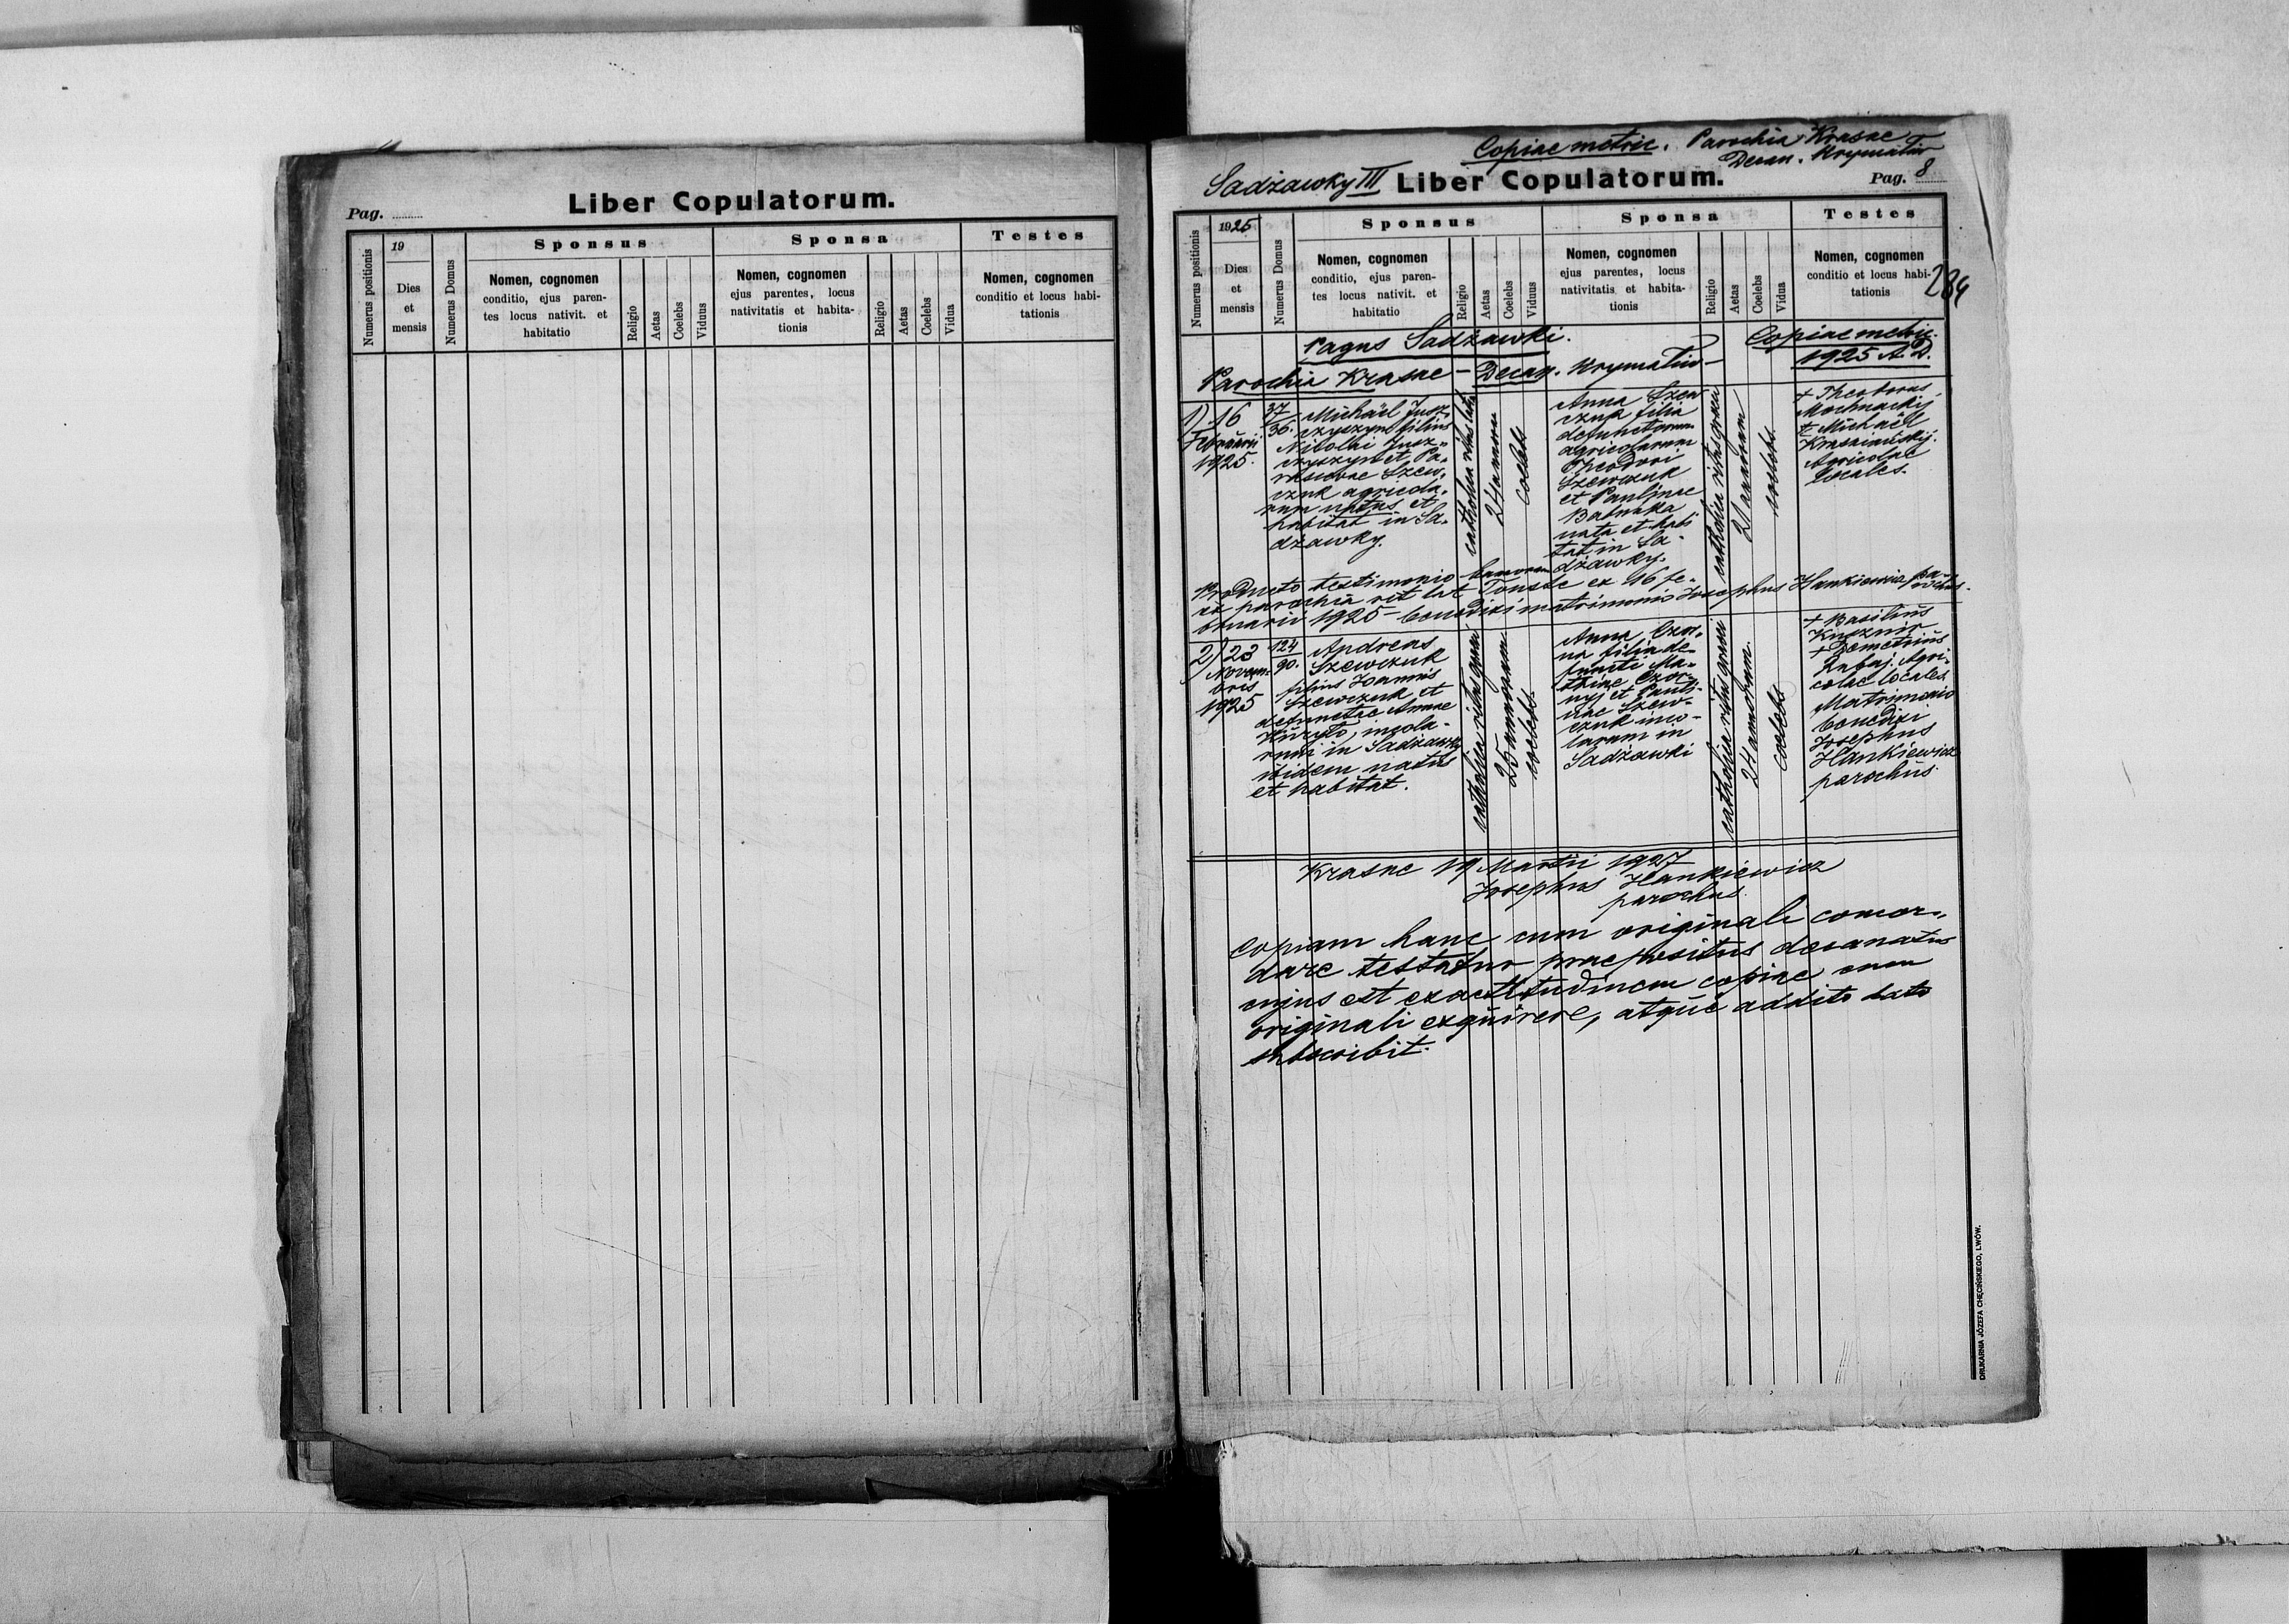 Liber Copulatorum.
Pag.
Numerus positionis
19
Dies
et
mensis
Numerus Domus
Sponsus
Nomen, cognomen
conditio, ejus paren-
tes locus nativit. et
habitatio
Religio
Aetas
Coelebs
Viduus
Sponsa
Nomen, cognomen
ejus parentes, locus
nativitatis et habita-
tionis
Religio
Aetas
Coelebs
Vidua
Testes
Nomen, cognomen
conditio et locus habi-
tationis
Copiae metric. Parochia Krasne
Decan.
Sadżawky III Liber Copulatorum.
Pag. 8
Numerus positionis
1925
Dies
et
mensis
Numerus Domus
Sponsus
Nomen, cognomen
conditio, ejus paren-
tes locus nativit. et
habitatio
Religio
Aetas
Coelebs
Viduus
Sponsa
Nomen, cognomen
ejus parentes, locus
nativitatis et habita-
tionis
Religio
Aetas
Coelebs
Vidua
Testes
Nomen, cognomen
conditio et locus habi-
tationis
284
Pagus Sadżawki.
Copiae metric.
1925 A. D.
Parochia Krasne – Decan.
1) 16
Februarii
1925.
37
36.
Michaël Jusz-
czyszyn filius
Nicolai Jusz-
czyszyn et Pa-
rasievae Szew-
czuk agricola-
rum natus et
habitat in Sa-
dżawky.
catholica ritus lat.
24 annorum
coelebs
Anna Szew
czuk filia
defunctorum
agricolarum
Theodori
Szewczuk
et Paulinae
nata et habi
tat in Sa-
dżawky.
catholica ritus graeci
21 annorum
coelebs
+ Theodorus
Mochnackij
+ Michaël
Agricolae
locales.
Producto testimonio bannorum
ex parochia rit lat Touste ex 16 fe-
bruarii 1925 – benedixi matrimonio Josephus Hankiewicz pa-
rochus.
2) 23
Novem-
bris
1925
124
90.
Andreas
Szewczuk
filius Joannis
Szewczuk et
defunctae Annae
incola-
rum in Sadżawky
ibidem natus
et habitat.
catholica ritus graeci
25 annorum
coelebs
Anna Czor-
na filia de-
functi Ma-
Czor-
nyj et Pauli-
nae Szew-
czuk inco-
larum in
Sadżawki
catholica ritus graeci
24 annorum.
coelebs
+ Basilius
Kusznir
+ Demetrius
Agri-
colae locales
Matrimonio
benedixi
Josephus
Hankiewicz
parochus.
Krasne 19 Martii 1927
Josephus Hankiewicz
parochus.
Copiam hanc cum originali concor-
dare testatur praepositus decanatus
cujus est exactitudinem copiae cum
originali exquirere, atque addito dato
subscribit.
DRUKARNIA JÓZEFA CHĘCIŃSKIEGO, LWÓW.